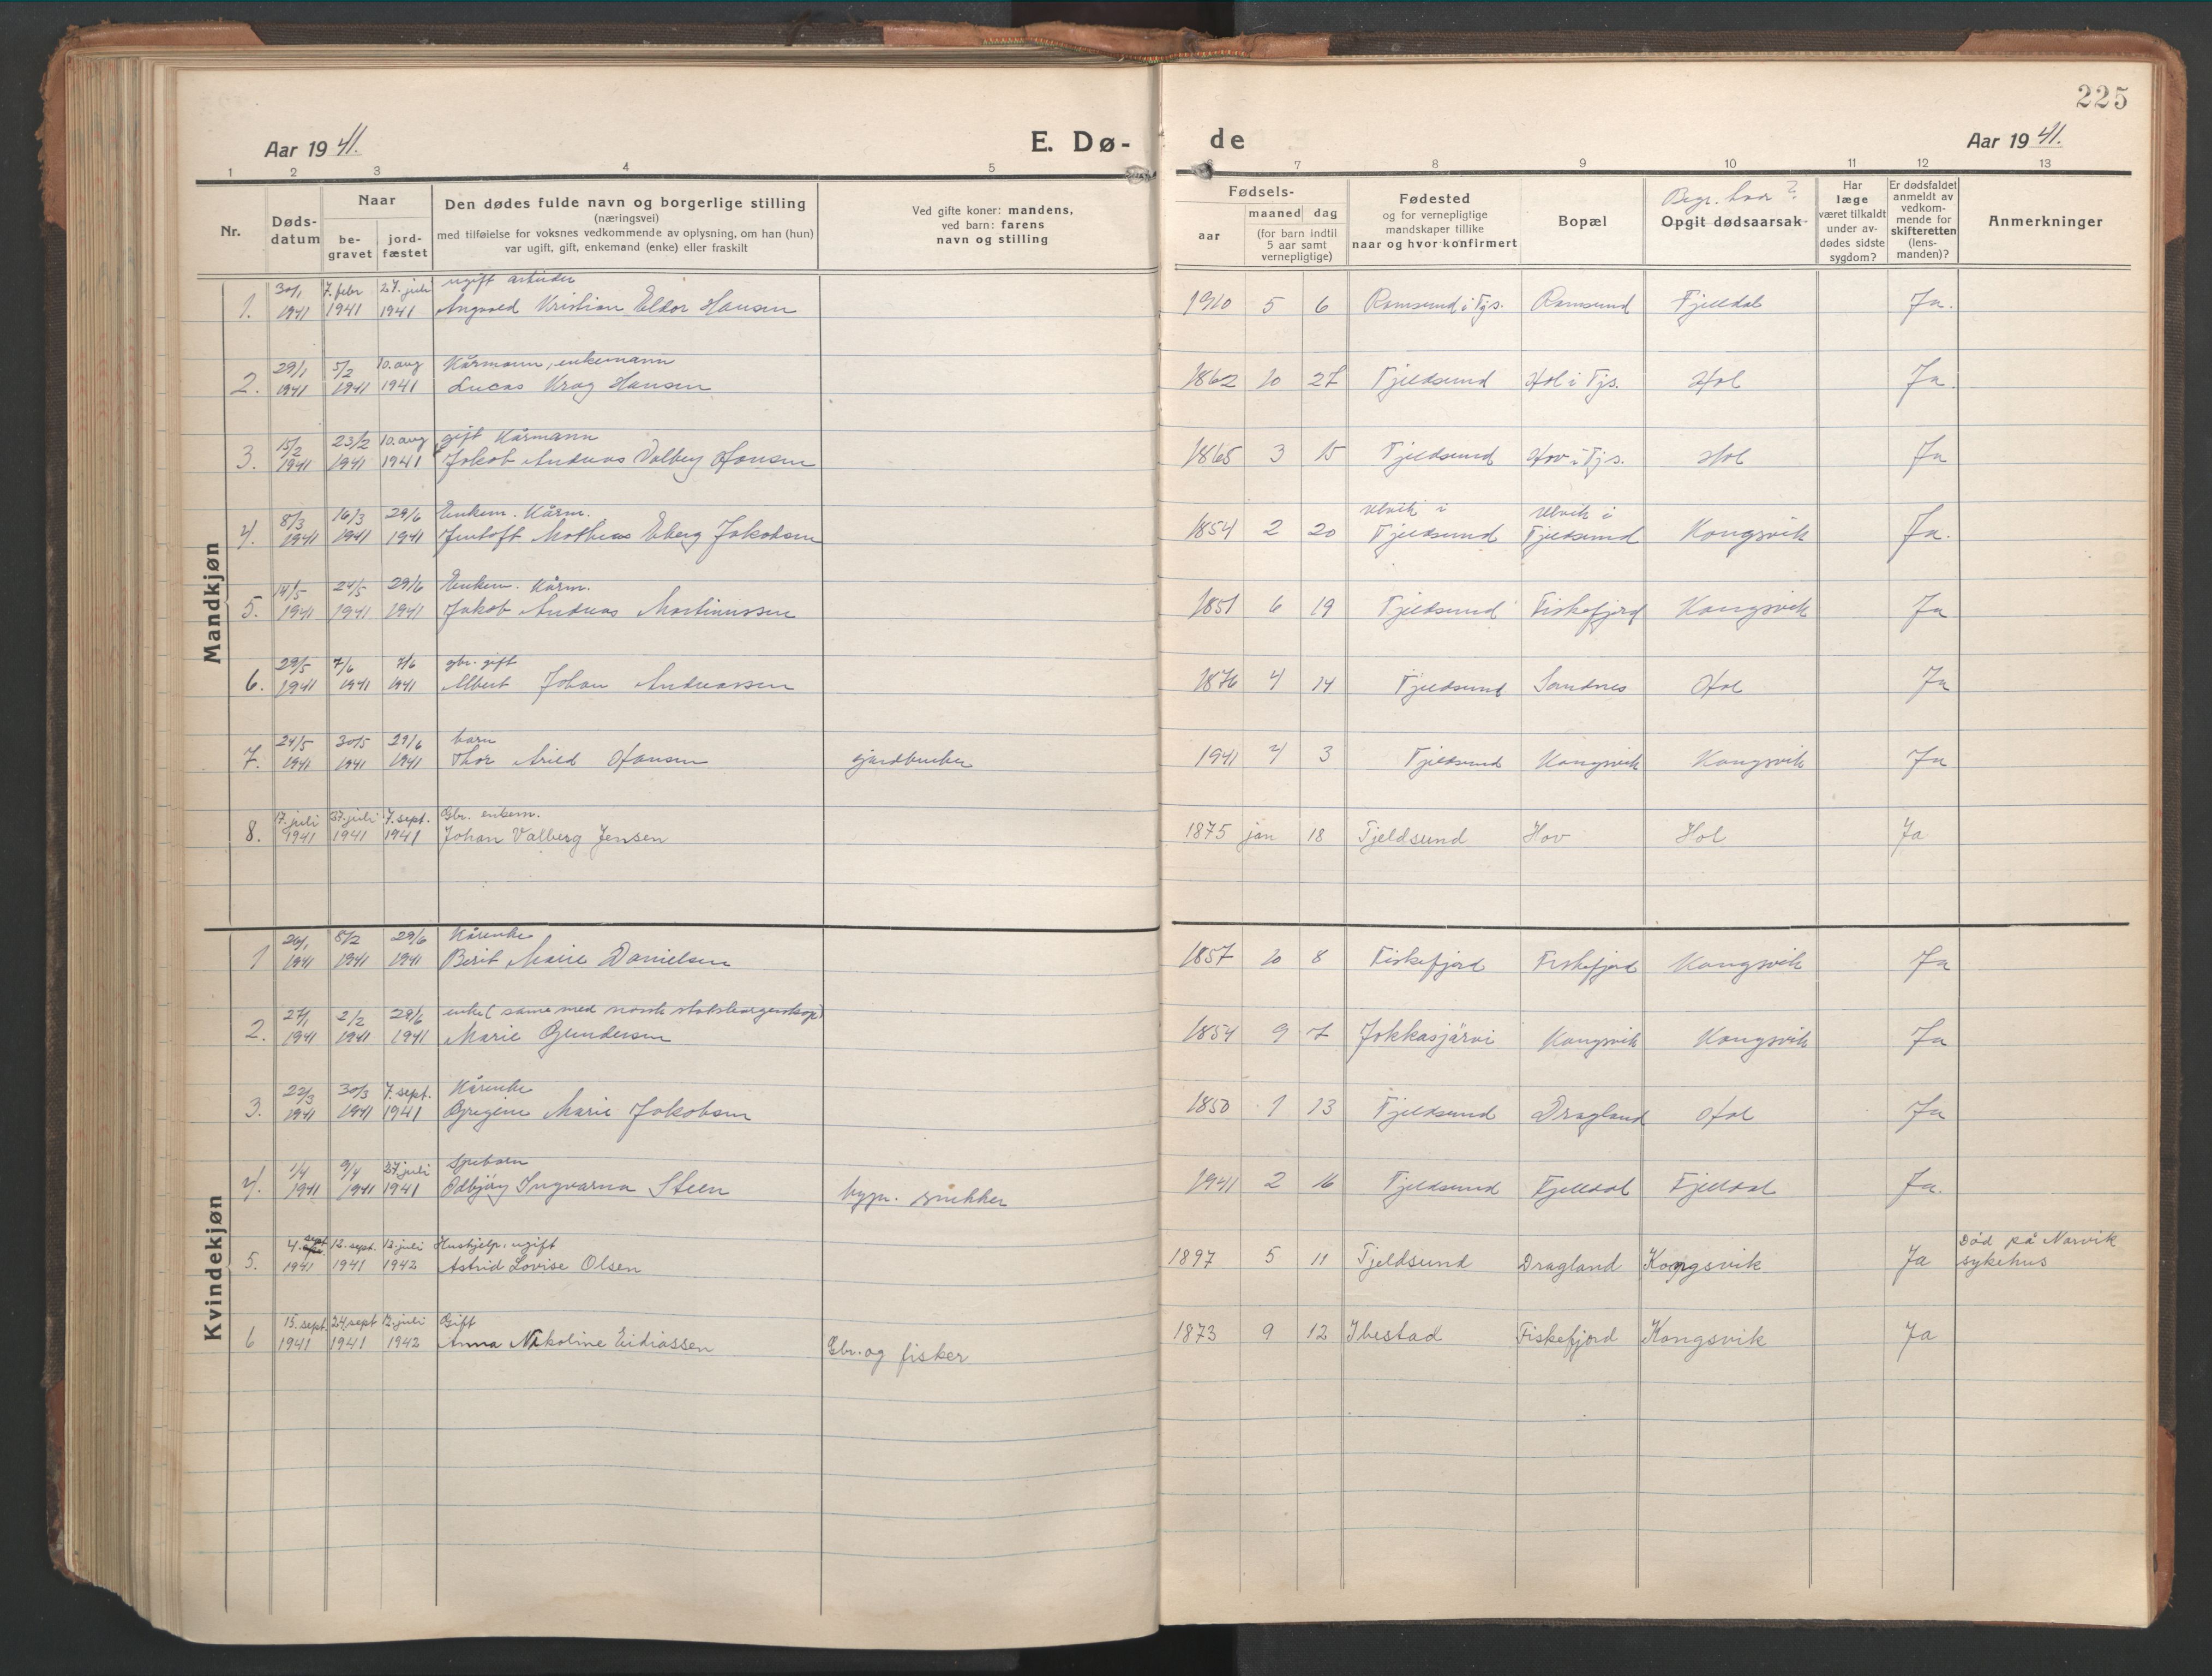 225
Aar 19 41.
E. Dø-
de
Aar 19 41.
1 2 3 4 5
6 7 8 9 10 11 12 13
Nr.
Døds-
datum
Naar
be-
gravet
jord-
fæstet
Den dødes fulde navn og borgerlige stilling
(næringsvei)
med tilføielse for voksnes vedkommende av oplysning, om han (hun)
var ugift, gift, enkemand (enke) eller fraskilt
Ved gifte koner: mandens,
ved barn: farens
navn og stilling
Fødsels-
aar
maaned dag
(for barn indtil
5 aar samt
vernepligtige)
Fødested
og for vernepligtige
mandskaper tillike
naar og hvor konfirmert
Bopæl
Begr. hvor?
Opgit dødsaarsak
Har
læge
været tilkaldt
under av-
dødes sidste
sygdom?
Er dødsfaldet
anmeldt av
vedkom-
mende for
skifteretten
(lens-
manden)?
Anmerkninger
Mandkjøn
30/1 7. febr 27. juli ugift arbeider
1. 1941 1941 1941 Angvald Kristian Eldor Hansen 1910 5 6 Ramsund i Tjs. Ramsund Fjelldal Ja.
29/1 5/2 10. aug Kårmann, enkemann
2. 1941 1941 1941 Lucas Krag Hansen 1862 10 27 Tjeldsund Hol i Tjs. Hol Ja.
15/2 23/2 10. aug gift Kårmann
3. 1941 1941 1941 Jakob Andreas Valberg Hansen 1865 3 15 Tjeldsund Hov i Tjs. Hol Ja
8/3 16/3 29/6 Enkem. Kårm. Ulvik i Ulvik i
4. 1941 1941 1941 Jentoft Mathias Eberg Jakobsen 1854 2 20 Tjeldsund Tjeldsund Kongsvik Ja.
14/5 24/5 29/6 Enkem. Kårm.
5. 1941 1941 1941 Jakob Andreas Martinussen 1851 6 19 Tjeldsund Fiskefjord Kongsvik Ja
29/5 7/6 7/6 gbr. gift
6. 1941 1941 1941 Albert Johan Andreassen 1876 4 14 Tjeldsund Sandnes Hol Ja
24/5 30/5 29/6 barn
7. 1941 1941 1941 Thor Arild Hansen gårdbruker 1941 4 3 Tjeldsund Kongsvik Kongsvik Ja
17. juli 27. juli 7. sept. Gbr. enkem.
8. 1941 1941 1941 Johan Valberg Jensen 1875 jan 18 Tjeldsund Hov Hol Ja
Kvindekjøn
26/1 8/2 29/6 Kårenke
1 1941 1941 1941 Berit Marie Danielsen 1857 10 8 Fiskefjord Fiskefjord Kongsvik Ja
27/1 2/2 29/6 enke (same med norsk statsborgerskap)
2. 1941 1941 1941 Marie Gundersen 1854 9 7 Jokkasjärvi Kongsvik Kongsvik Ja
22/3 30/3 7. sept. Kårenke
3. 1941 1941 1941 Gregine Marie Jakobsen 1850 1 13 Tjeldsund Dragland Hol Ja
1/4 9/4 27. juli Spebarn
4. 1941 1941 1941 Odbjörg Ingvarna Steen bygn. snekker 1941 2 16 Tjeldsund Fjelldal Fjelldal Ja.
4. sept. 12. sept. 12. juli Hushjelp, ugift Död på Narvik
5. 1941 1941 1942 Astrid Lovise Olsen 1897 5 11 Tjeldsund Dragland Kongsvik Ja sykehus
15. sept. 24. sept 12. juli Gift
6 1941 1941 1942 Anna Nikoline Eidiassen Gbr. og fisker 1873 9 12 Ibestad Fiskefjord Kongsvik Ja